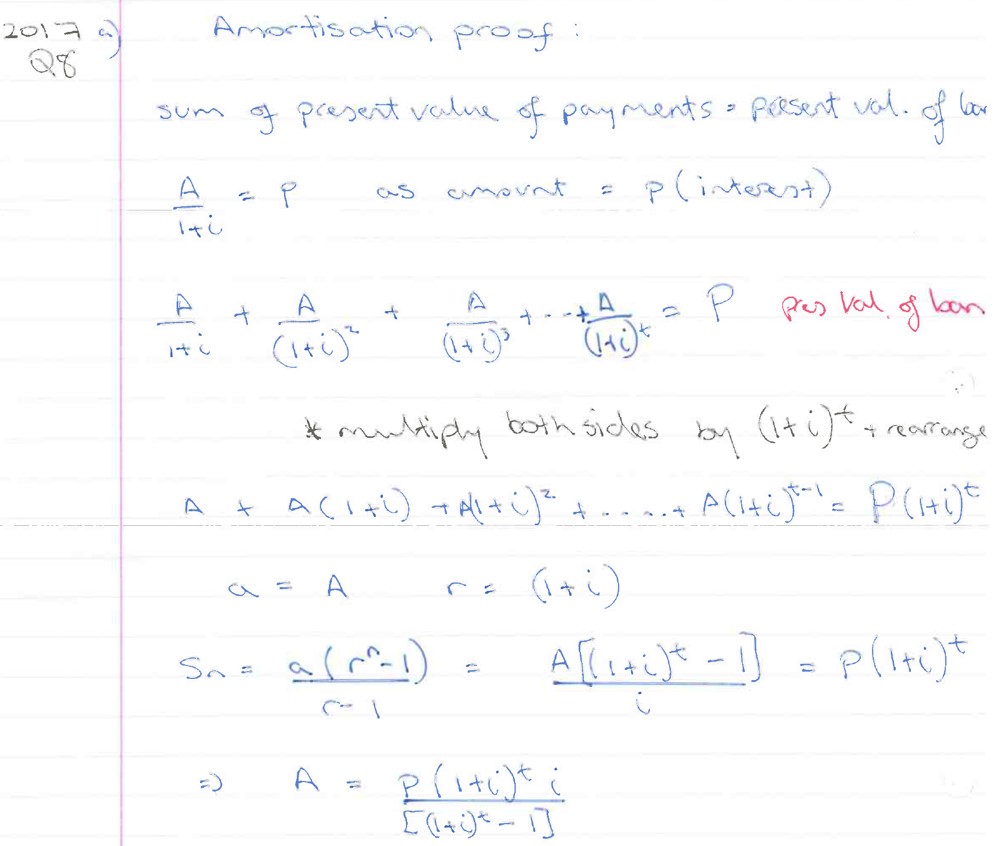 2017 a) Amortisation proof :
Q8
sum of present value of payments = present val. of loa
A/(1+i) = P as amount = P(interest)
A/(1+i) + A/(1+i)² + A/(1+i)³ + ... + A/(1+i)^t = P pres val. of loan
* multiply both sides by (1+i)^t + rearrange
A + A(1+i) + A(1+i)² + ..... + A(1+i)^(t-1) = P(1+i)^t
a = A r = (1+i)
Sn = a(r^n - 1)/(r-1) = A[(1+i)^t - 1]/i = P(1+i)^t
⇒ A = P(1+i)^t i/[(1+i)^t - 1]